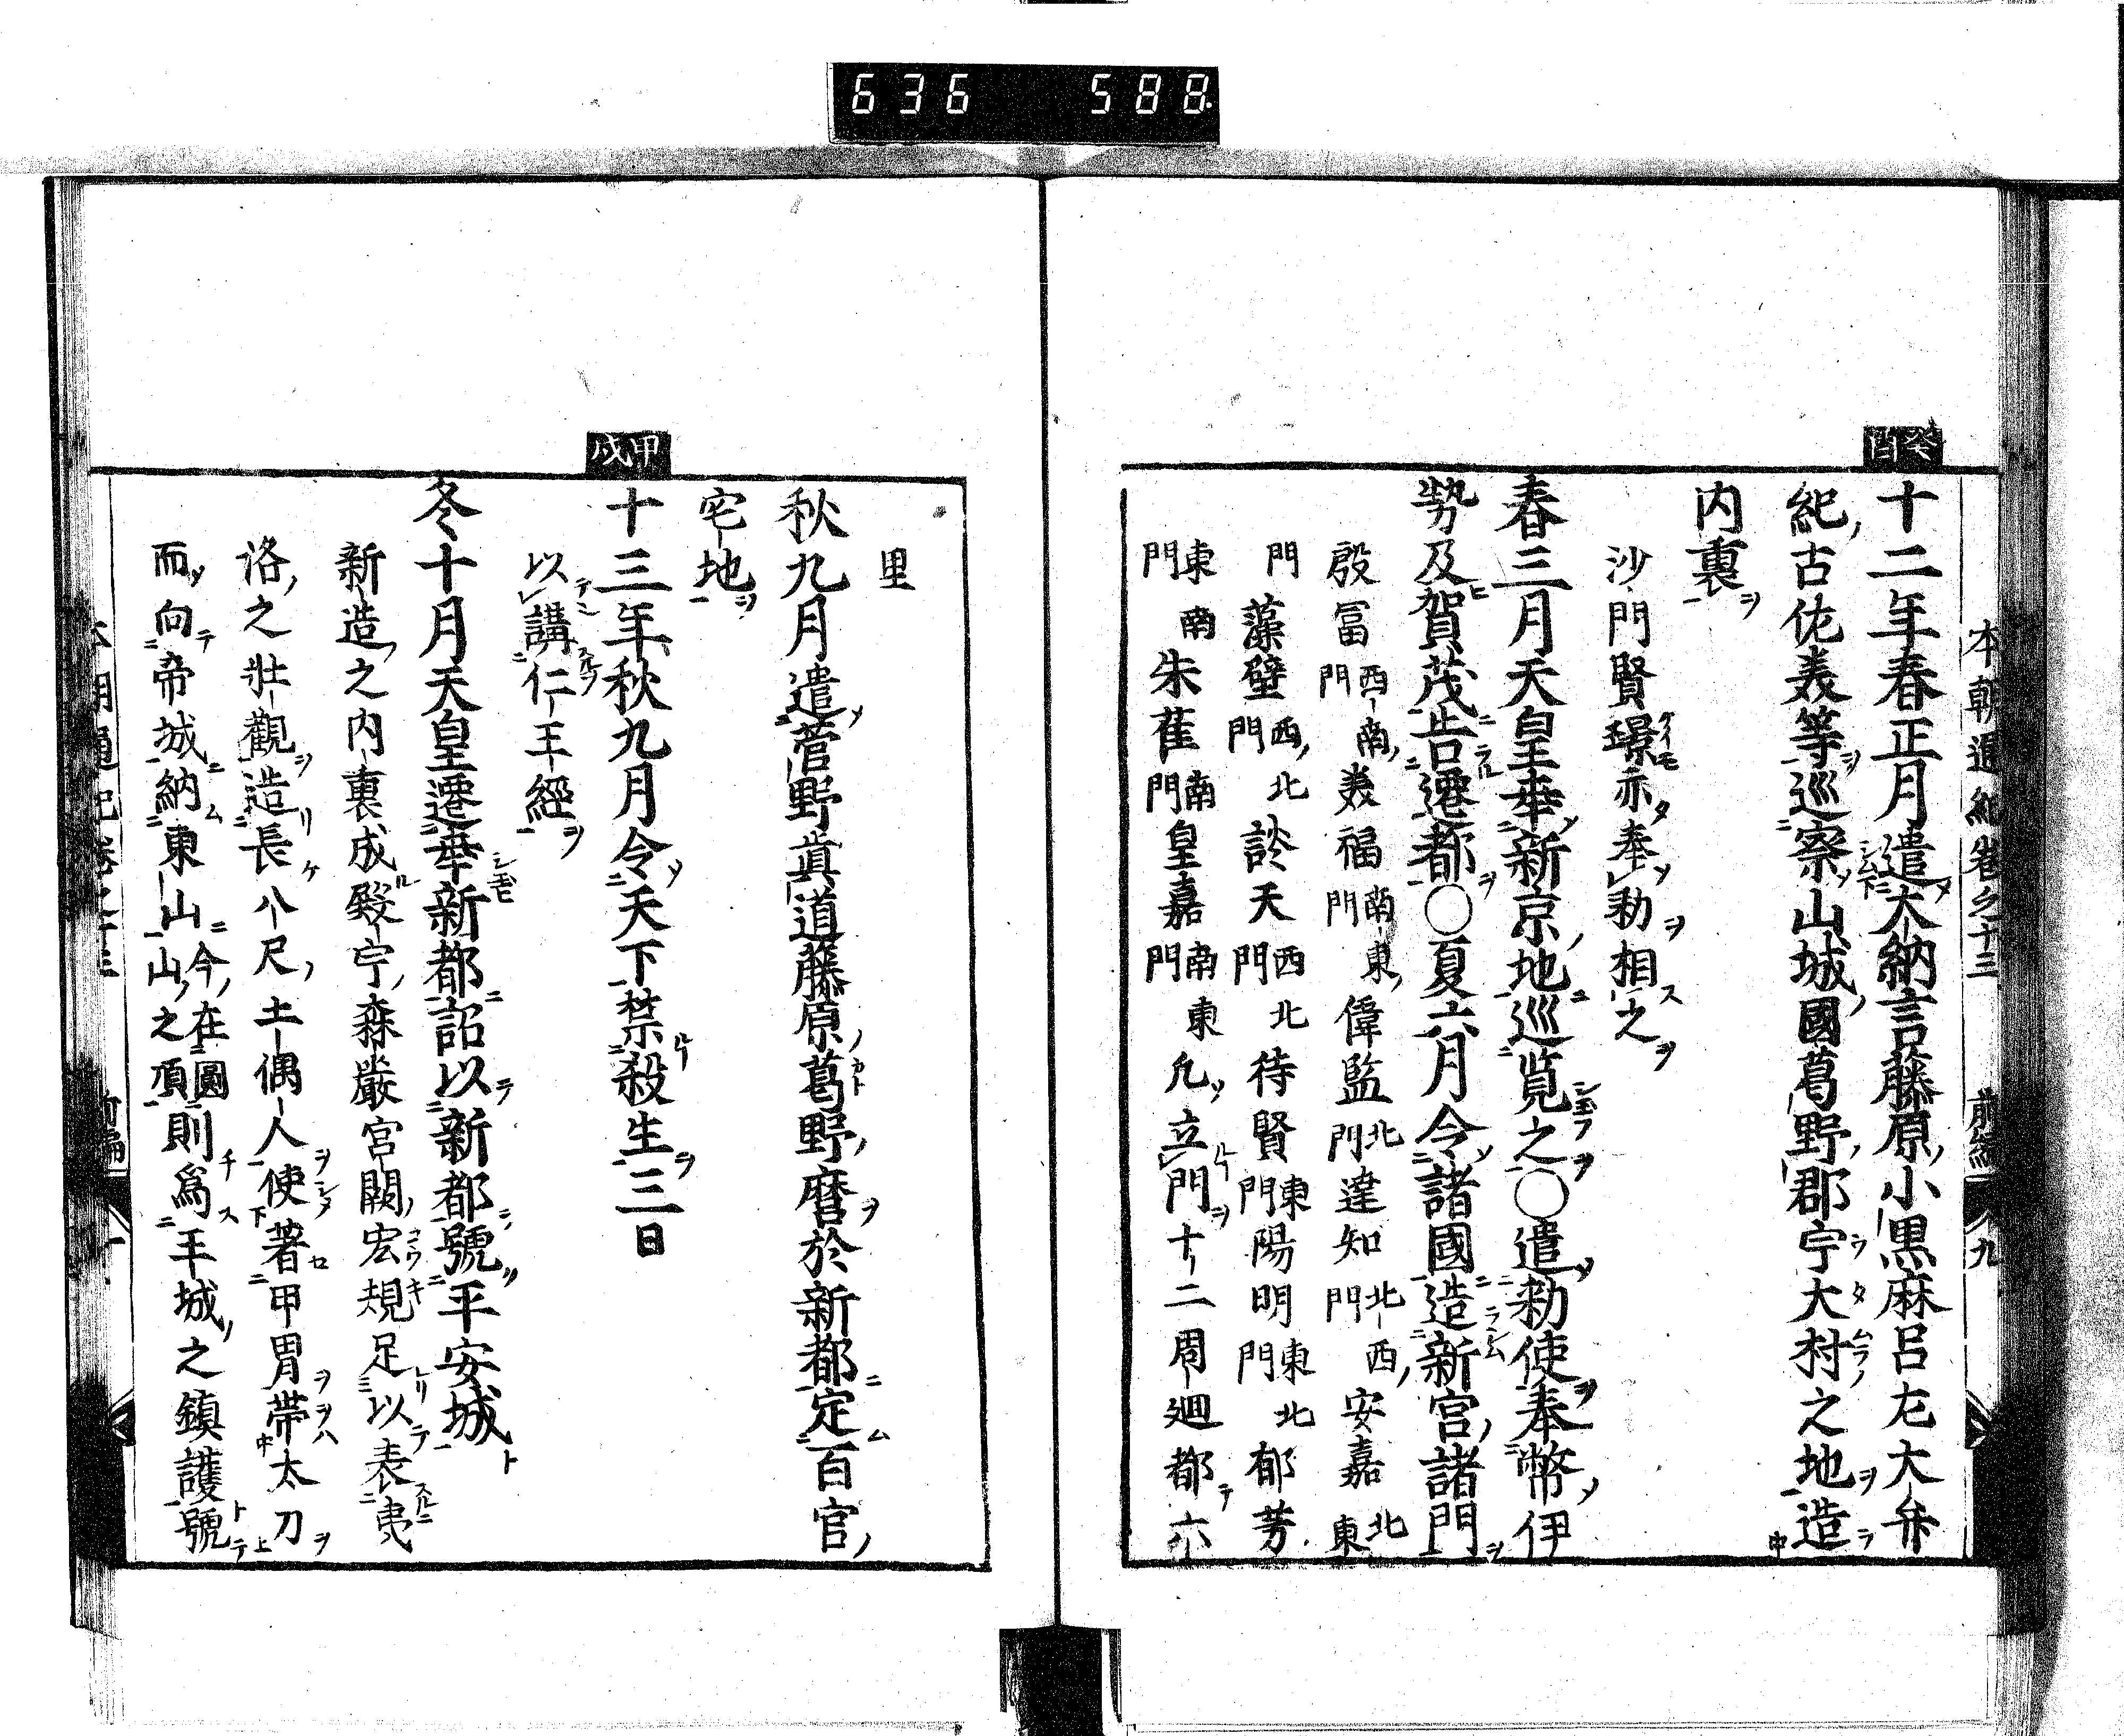 636 588
本朝通紀卷之十三 前編 九
癸酉
十二年春正月遣大納言藤原小黒麻呂左大弁
紀古佐美等巡察山城國葛野郡宇大村之地造
内裏
沙門賢璟亦奉勅相之
春三月天皇幸新京地巡覧之○遣勅使奉幣伊
勢及賀茂告遷都○夏六月令諸國造新宮諸門
殷冨門西南美福門南東偉監門北達知門北西安嘉北東
門藻壁門西北談天門西北待賢門東陽明門東北郁芳
門東南朱雀門南皇嘉門南東凢立門十二周廻都六
里
秋九月遣菅野眞道藤原葛野麿於新都定百官
宅地
甲戌
十三年秋九月令天下禁殺生三日
以講仁王經
冬十月天皇遷幸新都詔以新都號平安城
新造之内裏成殿宇森嚴宮闕宏規足以表夷
洛之壯觀造長八尺土偶人使著甲冑帶太刀
而向帝城納東山今在圓山之頂則爲王城之鎮護號